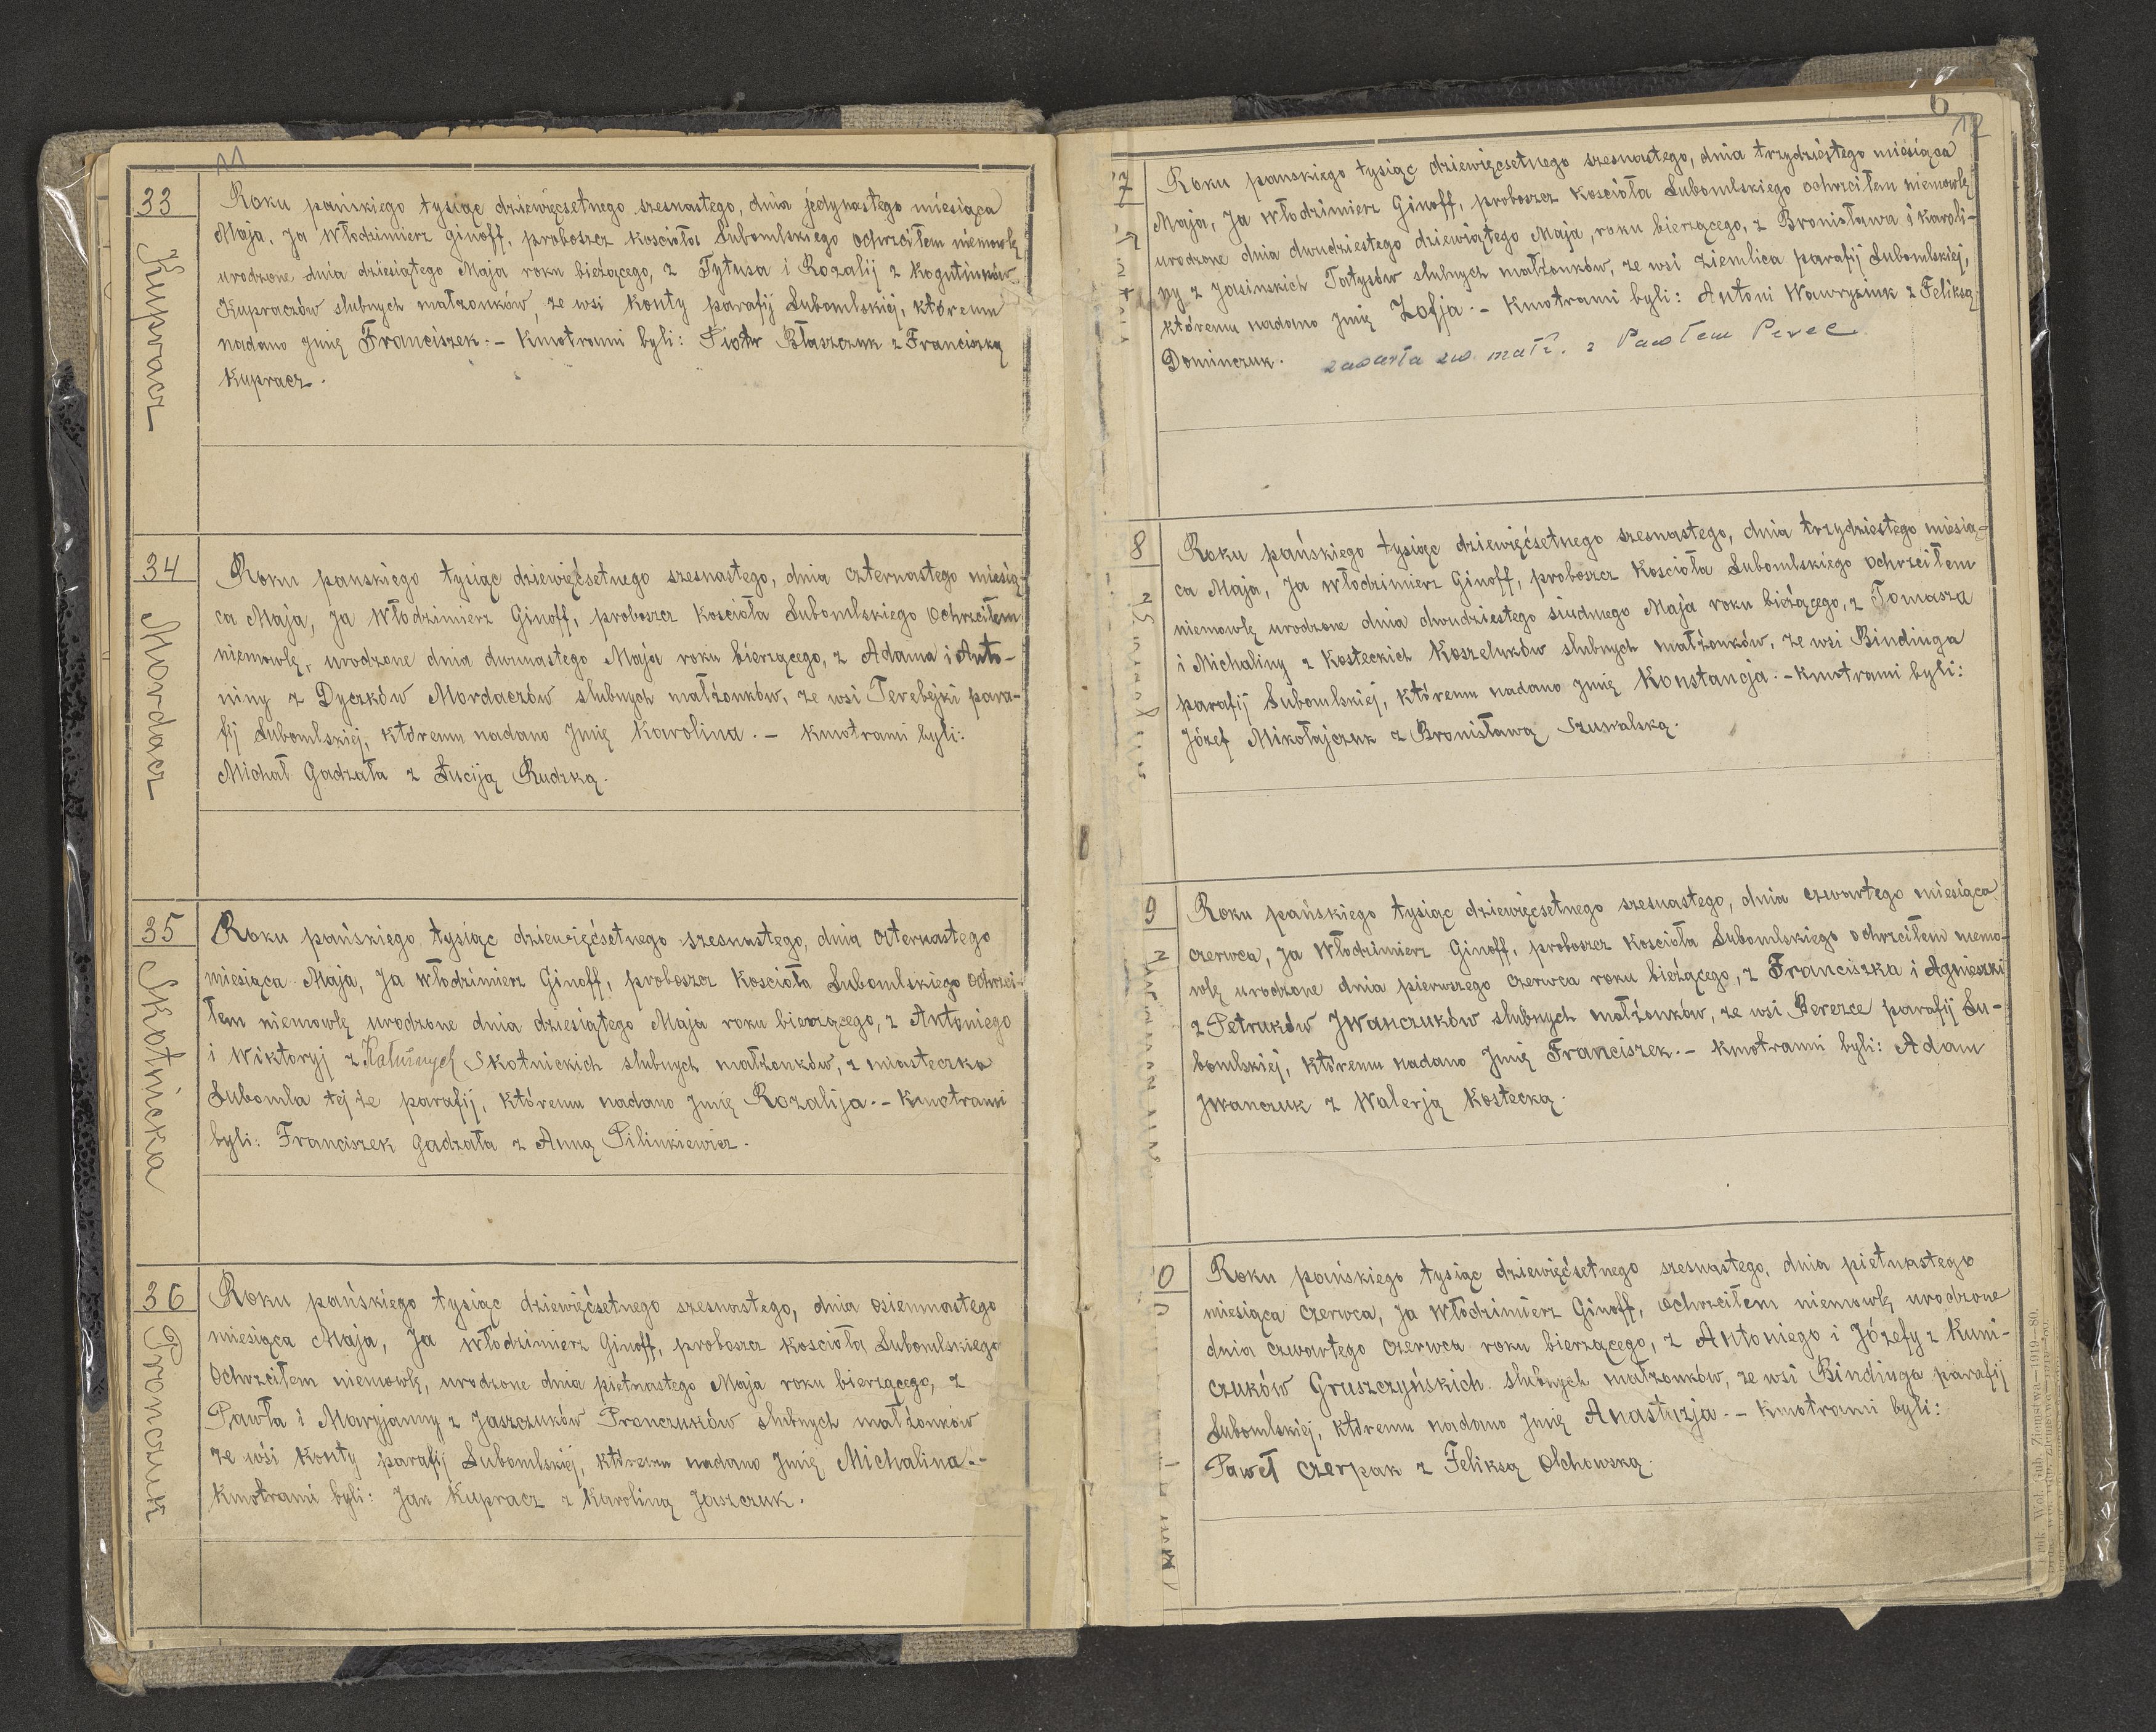 11
33
Kupracz
Roku pańskiego tysiąc dziewięcsetnego szesnastego, dnia jedynastego miesiąca
Maja, Ja Włodzimierz Ginoff, proboszcz Kościoła Lubomlskiego ochrzciłem niemowlę
urodzone dnia dziesiątego Maja roku bieżącego, z Tytusa i Rozalij z Kogutiuków
Kupraczów slubnych małżonków, ze wsi Konty parafij Lubomlskiej, któremu
nadano Jmię Franciszek. - Kmotrami byli: Piotr Błaszczuk z Franciszką
Kupracz.
34
Mordacz
Roku panskiego tysiąc dziewięćsetnego szesnastego, dnia czternastego miesią-
ca Maja, Ja Włodzimierz Ginoff, proboszcz Kościoła Lubomlskiego Ochrzciłem
niemowlę, urodzone dnia dwunastego Maja roku bierzącego, z Adama i Anto-
niny z Dyczków Mordaczów slubnych małżonków, ze wsi Terebejki para-
fij Lubomlskiej, któremu nadano Jmię Karolina. - Kmotrami byli:
Michał Gadzała z Łuciją Rudzką.
35
Skotnicka
Roku pańskiego, tysiąc dziewięćsetnego szesnastego, dnia czternastego
miesiąca Maja, Ja Włodzimierz Ginoff, proboszcz Kościoła Lubomlskiego Ochrzci-
łem niemowlę urodzone dnia dziesiątego Maja roku bierzącego, z Antoniego
i Wiktoryj z Skotnickich slubnych małżonków, z miasteczka
Lubomla tej że parafij, któremu nadano Jmię Rozalija. - Kmotrami
byli: Franciszek Gadzała z Anną Pilinkiewicz.
36
Pronczuk
Roku pańskiego tysiąc dziewięćsetnego szesnastego, dnia osiemnastego
miesiąca Maja, Ja Włodzimierz Ginoff, proboszcz Kościoła Lubomlskiego
Ochrzciłem niemowlę, urodzone dnia pietnastego Maja roku bierzącego, z
Pawła i Maryjanny z Jaszczuków Pronczuków slubnych małżonków
ze wsi Konty parafij Lubomlskiej, któremu nadano Jmię Michalina. -
Kmotrami byli: Jan Kupracz z Karoliną Jaszczuk.
6
12
7
Roku panskiego tysiąc dziewięcsetnego szesnastego, dnia trzydziestego miesiąca
Maja, Ja Włodzimierz Ginoff, proboszcz Kościoła Lubomlskiego ochrzciłem niemowlę
urodzone dnia dwudziestego dziewiątego Maja, roku bierzącego, z Bronisława i Karoli-
ny z Jasinskich Tatysów slubnych małżonków, ze wsi Ziemlica parafij Lubomlskiej,
któremu nadano Jmię Zofja. - Kmotrami byli: Antoni Wawryszuk z Feliksą
Dominczuk. zawarła zw. małż. z Pawłem Perec
8
Roku pańskiego tysiąc dziewięćsetnego szesnastego, dnia trzydziestego miesią-
ca Maja, Ja Włodzimierz Ginoff, proboszcz Kościoła Lubomlskiego Ochrzciłem
niemowlę urodzone dnia dwudziestego siudmego Maja roku bieżącego, z Tomasza
i Michaliny z Kosteckich Koszeluków slubnych małżonków, ze wsi Bindiuga
parafij Lubomlskiej, któremu nadano Jmię Konstancja. - Kmotrami byli:
Józef Mikołajczuk z Bronisławą Szuwalską.
9
Roku pańskiego tysiąc dziewięcsetnego szesnastego, dnia czwartego miesiąca
czerwca, Ja Włodzimierz Ginoff, proboszcz Kościoła Lubomlskiego ochrzciłem niemo-
wlę urodzone dnia pierwszego Czerwca roku bieżącego, z Franciszka i Agnieszki
z Petruków Jwanczuków slubnych małżonków, ze wsi Berezce parafij Lu-
bomlskiej, któremu nadano Jmię Franciszek. - Kmotrami byli: Adam
Jwanczuk z Walerją Kostecką.
0
Roku pańskiego tysiąc dziewięćsetnego szesnastego, dnia pietnastego
miesiąca Czerwca, Ja Włodzimierz Ginoff, Ochrzciłem niemowlę urodzone
dnia czwartego Czerwca roku bierzącego, z Antoniego i Józefy z Kuni-
czuków Gruszczyńskich slubnych małżonków, ze wsi Bindiuga parafij
Lubomlskiej, któremu nadano Jmię Anastazja. - Kmotrami byli:
Paweł Czerpak z Feliksą Olchowską.